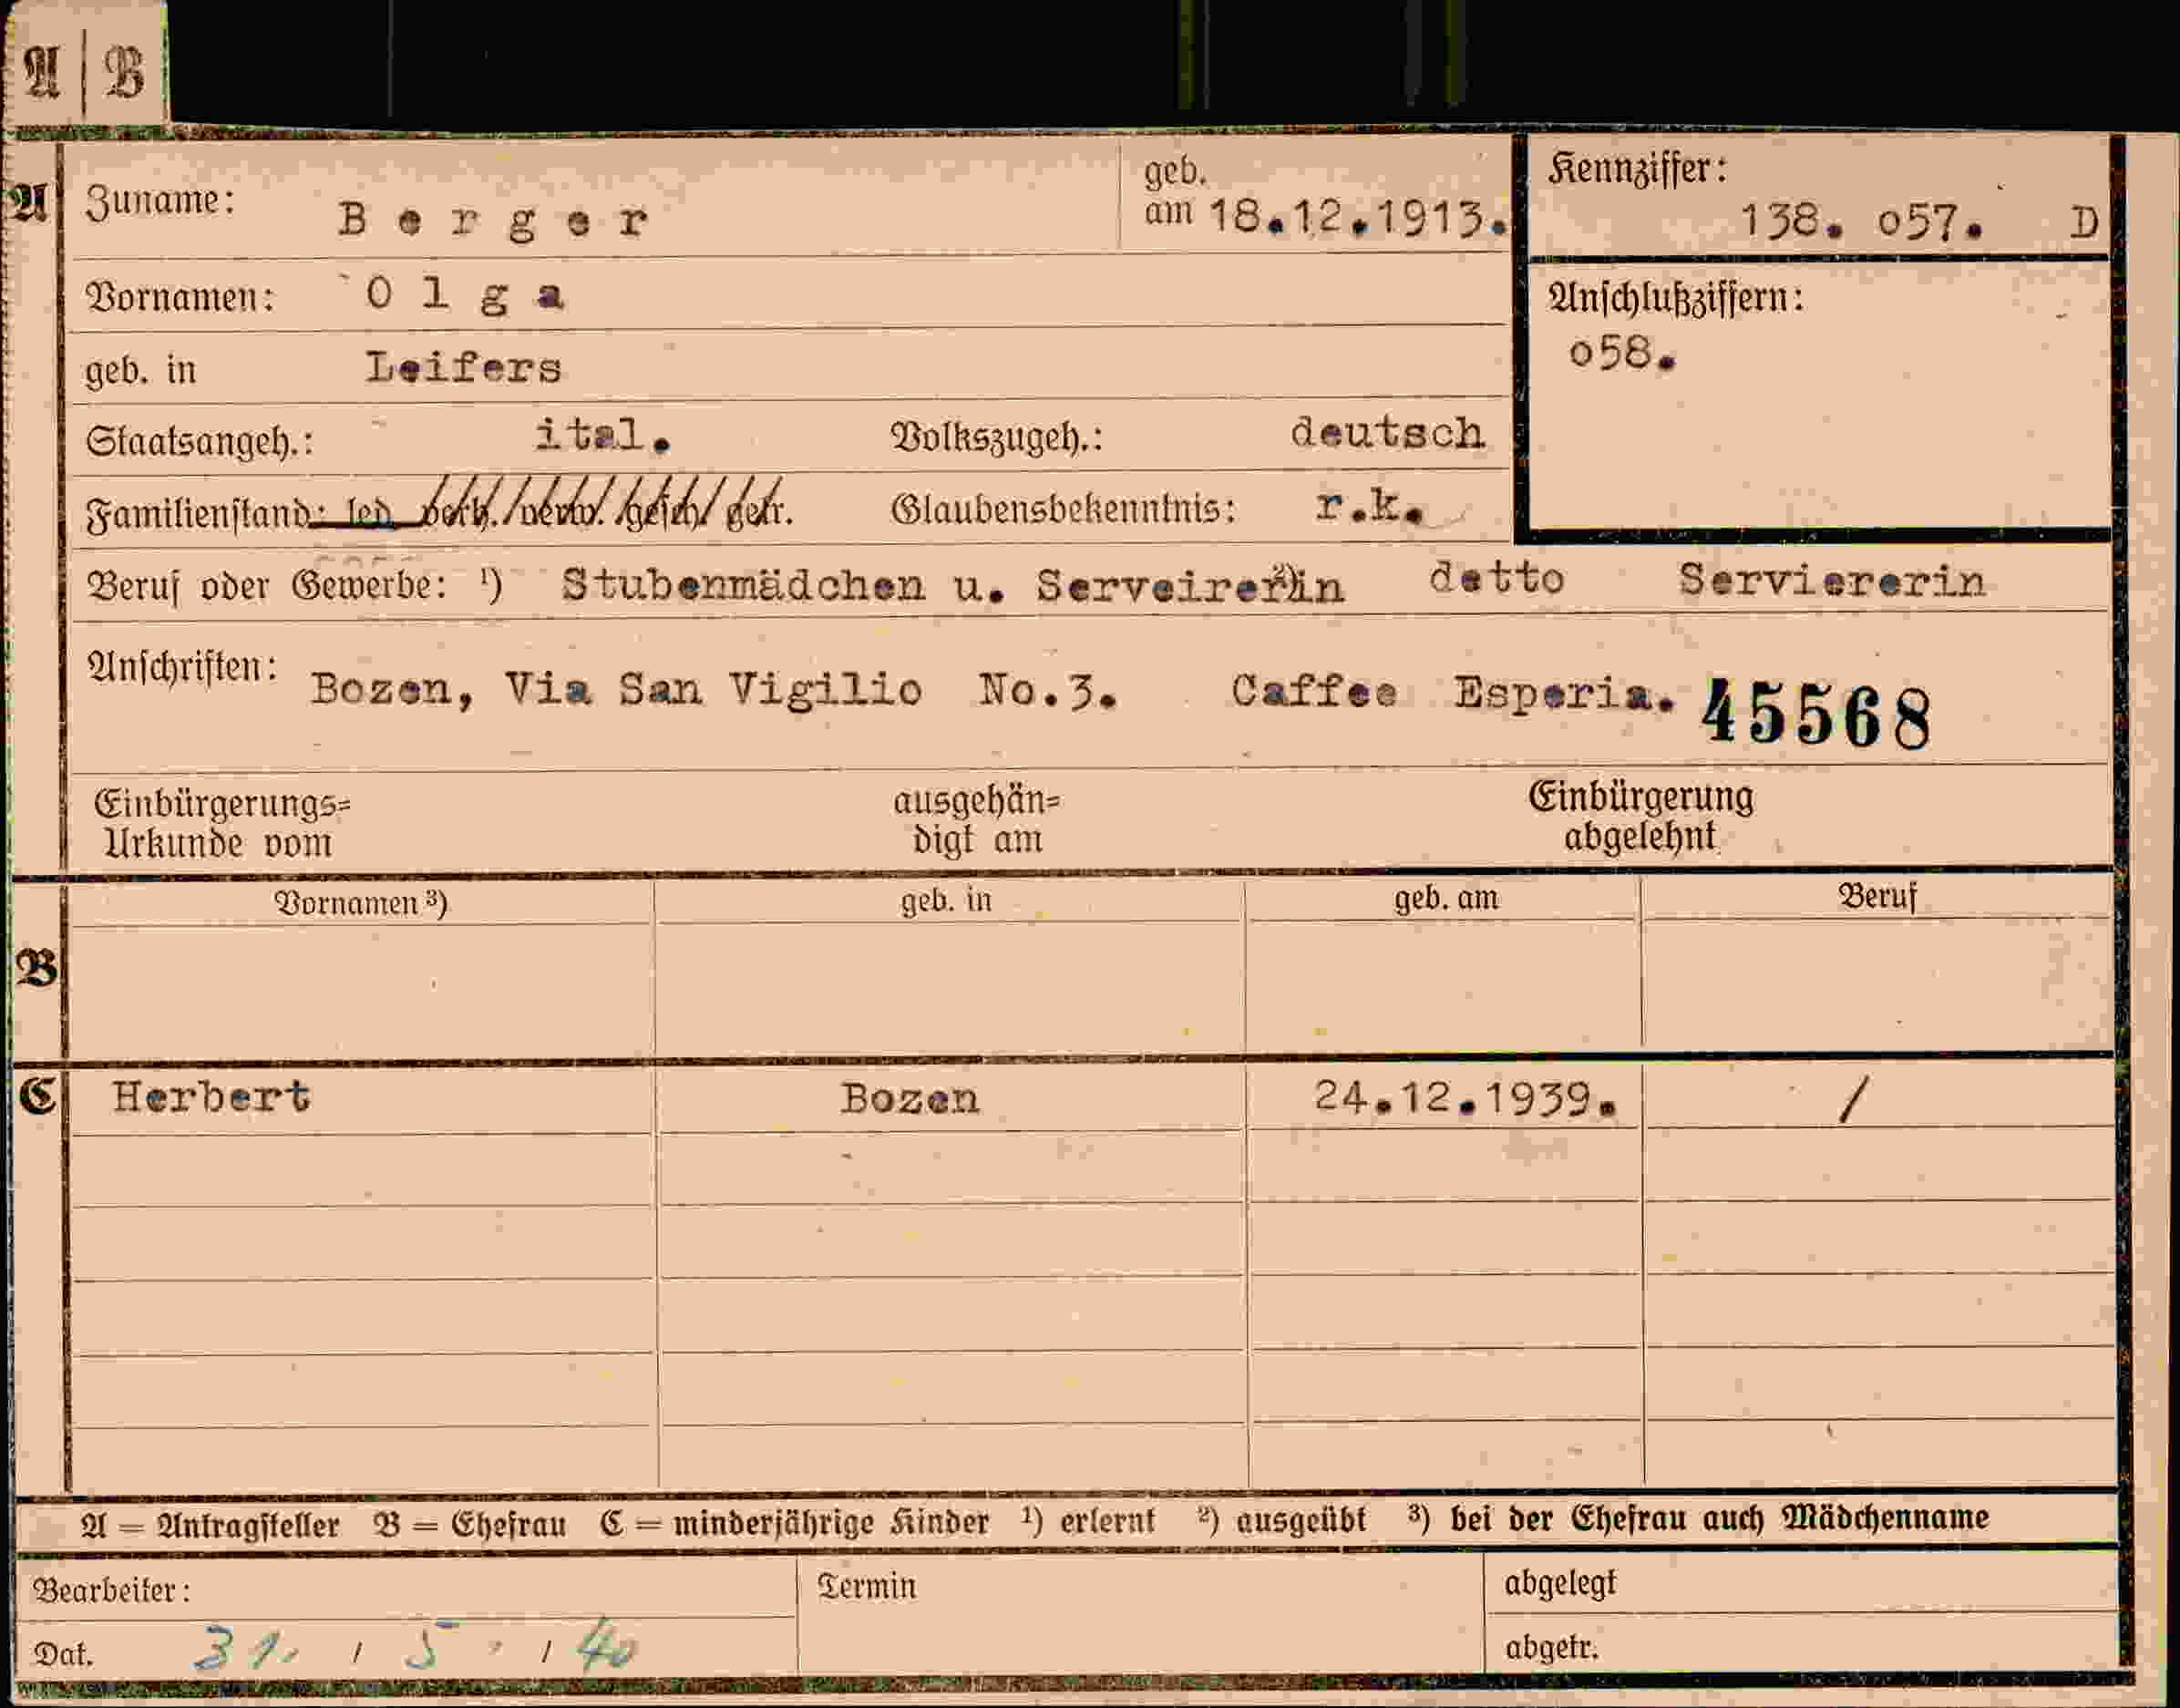 A | B
A Zuname: Berger geb. am 18.12.1913. Kennziffer: 138. o57. D
Vornamen: Olga Anschlußziffern:
o58.
geb. in Leifers
Staatsangeh.: ital. Volkszugeh.: deutsch
Familienstand: led verh./verw./gesch/getr. Glaubensbekenntnis: r.k.
Beruf oder Gewerbe: ¹) Stubenmädchen u. Serveirerin ²) detto Serviererin
Anschriften: Bozen, Via San Vigilio No.3. Caffee Esperia. 45568
Einbürgerungs= ausgehän= Einbürgerung
Urkunde vom digt am abgelehnt
Vornamen ³) geb. in geb. am Beruf
B
C Herbert Bozen 24.12.1939. /
A = Antragsteller B = Ehefrau C = minderjährige Kinder ¹) erlernt ²) ausgeübt ³) bei der Ehefrau auch Mädchenname
Bearbeiter: Termin abgelegt
Dat. 31. / 5. / 40 abgetr.